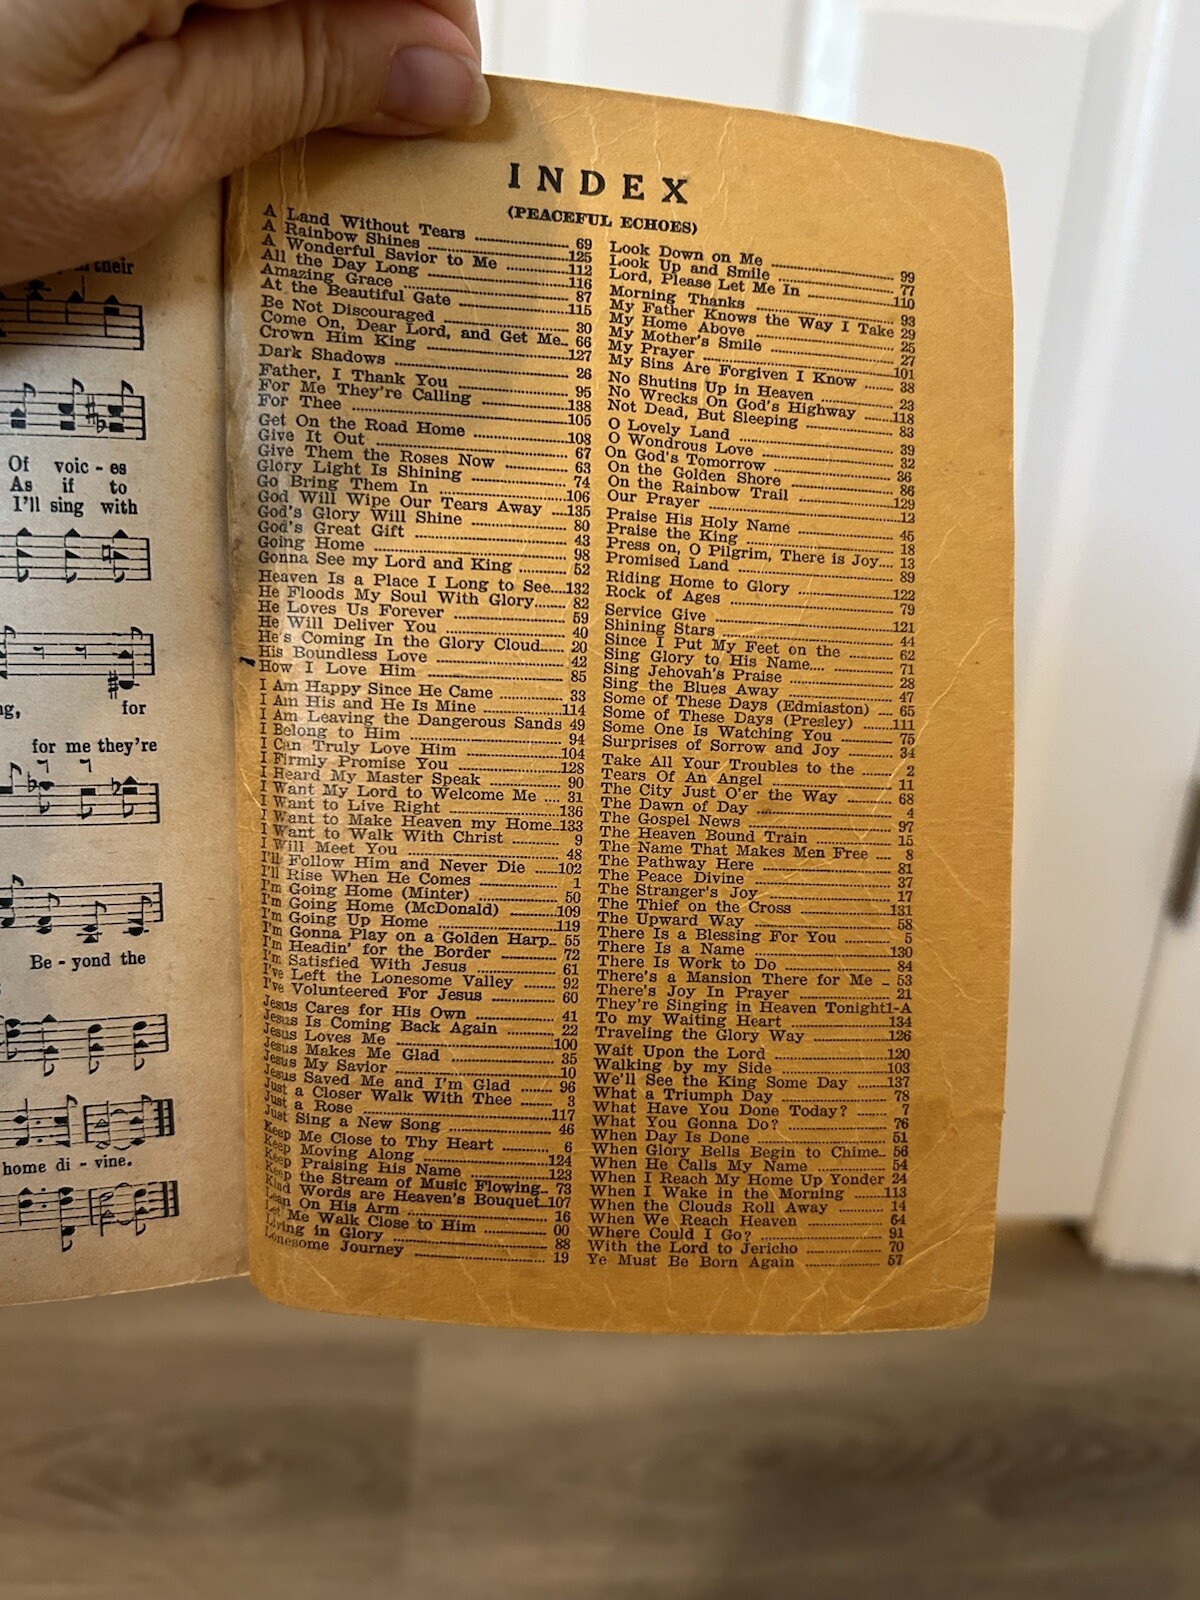 their
Of voic - es
As if to
I'll sing with
ng, for
for me they're
Be - yond the
home di - vine.
INDEX
(PEACEFUL ECHOES)
A Land Without Tears ........ 69
A Rainbow Shines ........ 125
A Wonderful Savior to Me ........ 112
All the Day Long ........ 116
Amazing Grace ........ 87
At the Beautiful Gate ........ 115
Be Not Discouraged ........ 30
Come On, Dear Lord, and Get Me.. 66
Crown Him King ........ 127
Dark Shadows ........ 26
Father, I Thank You ........ 95
For Me They're Calling ........ 138
For Thee ........ 105
Get On the Road Home ........ 108
Give It Out ........ 67
Give Them the Roses Now ........ 63
Glory Light Is Shining ........ 74
Go Bring Them In ........ 106
God Will Wipe Our Tears Away ....135
God's Glory Will Shine ........ 80
God's Great Gift ........ 43
Going Home ........ 98
Gonna See my Lord and King ........ 52
Heaven Is a Place I Long to See....132
He Floods My Soul With Glory........ 82
He Loves Us Forever ........ 59
He Will Deliver You ........ 40
He's Coming In the Glory Cloud..... 20
His Boundless Love ........ 42
How I Love Him ........ 85
I Am Happy Since He Came ........ 33
I Am His and He Is Mine ........ 114
I Am Leaving the Dangerous Sands 49
I Belong to Him ........ 94
I Can Truly Love Him ........ 104
I Firmly Promise You ........ 128
I Heard My Master Speak ........ 90
I Want My Lord to Welcome Me .... 31
I Want to Live Right ........ 136
I Want to Make Heaven my Home..133
I Want to Walk With Christ ........ 9
I Will Meet You ........ 48
I'll Follow Him and Never Die ......102
I'll Rise When He Comes ........ 1
I'm Going Home (Minter) ........ 50
I'm Going Home (McDonald) ........ 109
I'm Going Up Home ........ 119
I'm Gonna Play on a Golden Harp.. 55
I'm Headin' for the Border ........ 72
I'm Satisfied With Jesus ........ 61
I've Left the Lonesome Valley ........ 92
I've Volunteered For Jesus ........ 60
Jesus Cares for His Own ........ 41
Jesus Is Coming Back Again ........ 22
Jesus Loves Me ........ 100
Jesus Makes Me Glad ........ 35
Jesus My Savior ........ 10
Jesus Saved Me and I'm Glad ........ 96
Just a Closer Walk With Thee ........ 3
Just a Rose ........ 117
Just Sing a New Song ........ 46
Keep Me Close to Thy Heart ........ 6
Keep Moving Along ........ 124
Keep Praising His Name ........ 123
Keep the Stream of Music Flowing.. 73
Kind Words are Heaven's Bouquet..107
Lean On His Arm ........ 16
Let Me Walk Close to Him ........ 00
Living in Glory ........ 88
Lonesome Journey ........ 19
Look Down on Me ........ 99
Look Up and Smile ........ 77
Lord, Please Let Me In ........ 110
Morning Thanks ........ 93
My Father Knows the Way I Take 29
My Home Above ........ 25
My Mother's Smile ........ 27
My Prayer ........ 101
My Sins Are Forgiven I Know ...... 38
No Shutins Up in Heaven ........ 23
No Wrecks On God's Highway ........118
Not Dead, But Sleeping ........ 83
O Lovely Land ........ 39
O Wondrous Love ........ 32
On God's Tomorrow ........ 36
On the Golden Shore ........ 86
On the Rainbow Trail ........ 129
Our Prayer ........ 12
Praise His Holy Name ........ 45
Praise the King ........ 18
Press on, O Pilgrim, There is Joy.... 13
Promised Land ........ 89
Riding Home to Glory ........ 122
Rock of Ages ........ 79
Service Give ........ 121
Shining Stars ........ 44
Since I Put My Feet on the ........ 62
Sing Glory to His Name.... ........ 71
Sing Jehovah's Praise ........ 28
Sing the Blues Away ........ 47
Some of These Days (Edmiaston) .... 65
Some of These Days (Presley) ......111
Some One Is Watching You ........ 75
Surprises of Sorrow and Joy ........ 34
Take All Your Troubles to the ........ 2
Tears Of An Angel ........ 11
The City Just O'er the Way ........ 68
The Dawn of Day ........ 4
The Gospel News ........ 97
The Heaven Bound Train ........ 15
The Name That Makes Men Free .... 8
The Pathway Here ........ 81
The Peace Divine ........ 37
The Stranger's Joy ........ 17
The Thief on the Cross ........ 131
The Upward Way ........ 58
There Is a Blessing For You ........ 5
There Is a Name ........ 130
There Is Work to Do ........ 84
There's a Mansion There for Me .. 53
There's Joy In Prayer ........ 21
They're Singing in Heaven Tonight1-A
To my Waiting Heart ........ 134
Traveling the Glory Way ........ 126
Wait Upon the Lord ........ 120
Walking by my Side ........ 103
We'll See the King Some Day ........137
What a Triumph Day ........ 78
What Have You Done Today? ...... 7
What You Gonna Do? ........ 76
When Day Is Done ........ 51
When Glory Bells Begin to Chime.. 56
When He Calls My Name ........ 54
When I Reach My Home Up Yonder 24
When I Wake in the Morning ........113
When the Clouds Roll Away ........ 14
When We Reach Heaven ........ 64
Where Could I Go? ........ 91
With the Lord to Jericho ........ 70
Ye Must Be Born Again ........ 57